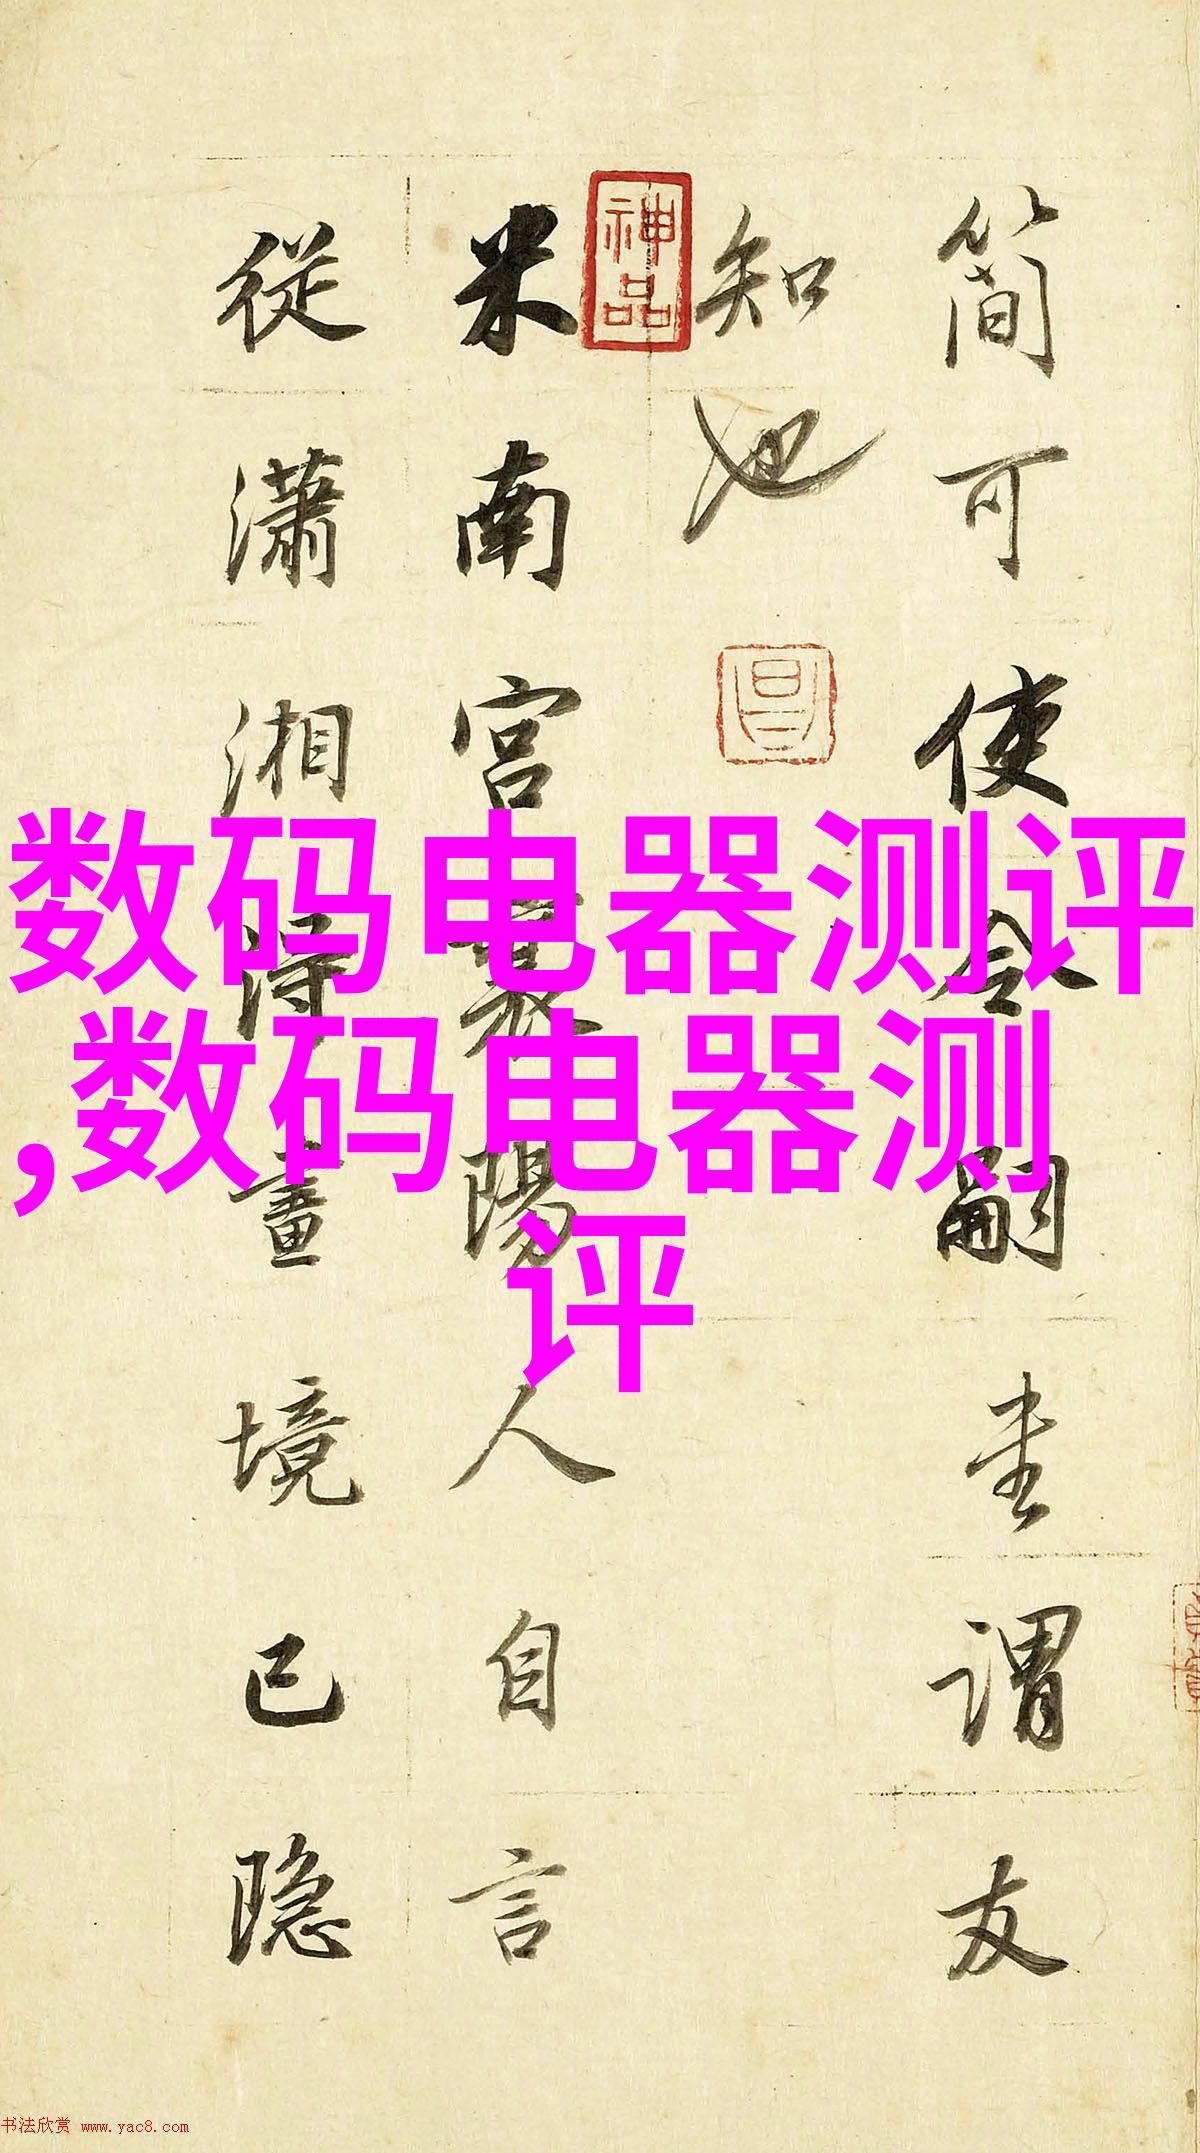 簡可使令嗣謂友
知也
神品
米南宮襄陽人自言
從瀟湘得畫境已隐
数码电器测评
,数码电器测
评
书法欣赏 www.yac8.com